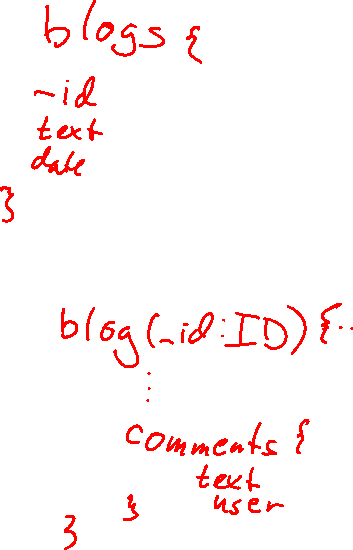 blogs {
_id
text
date
}
blog(_id:ID) {..
⋮
comments {
text
user
}
}